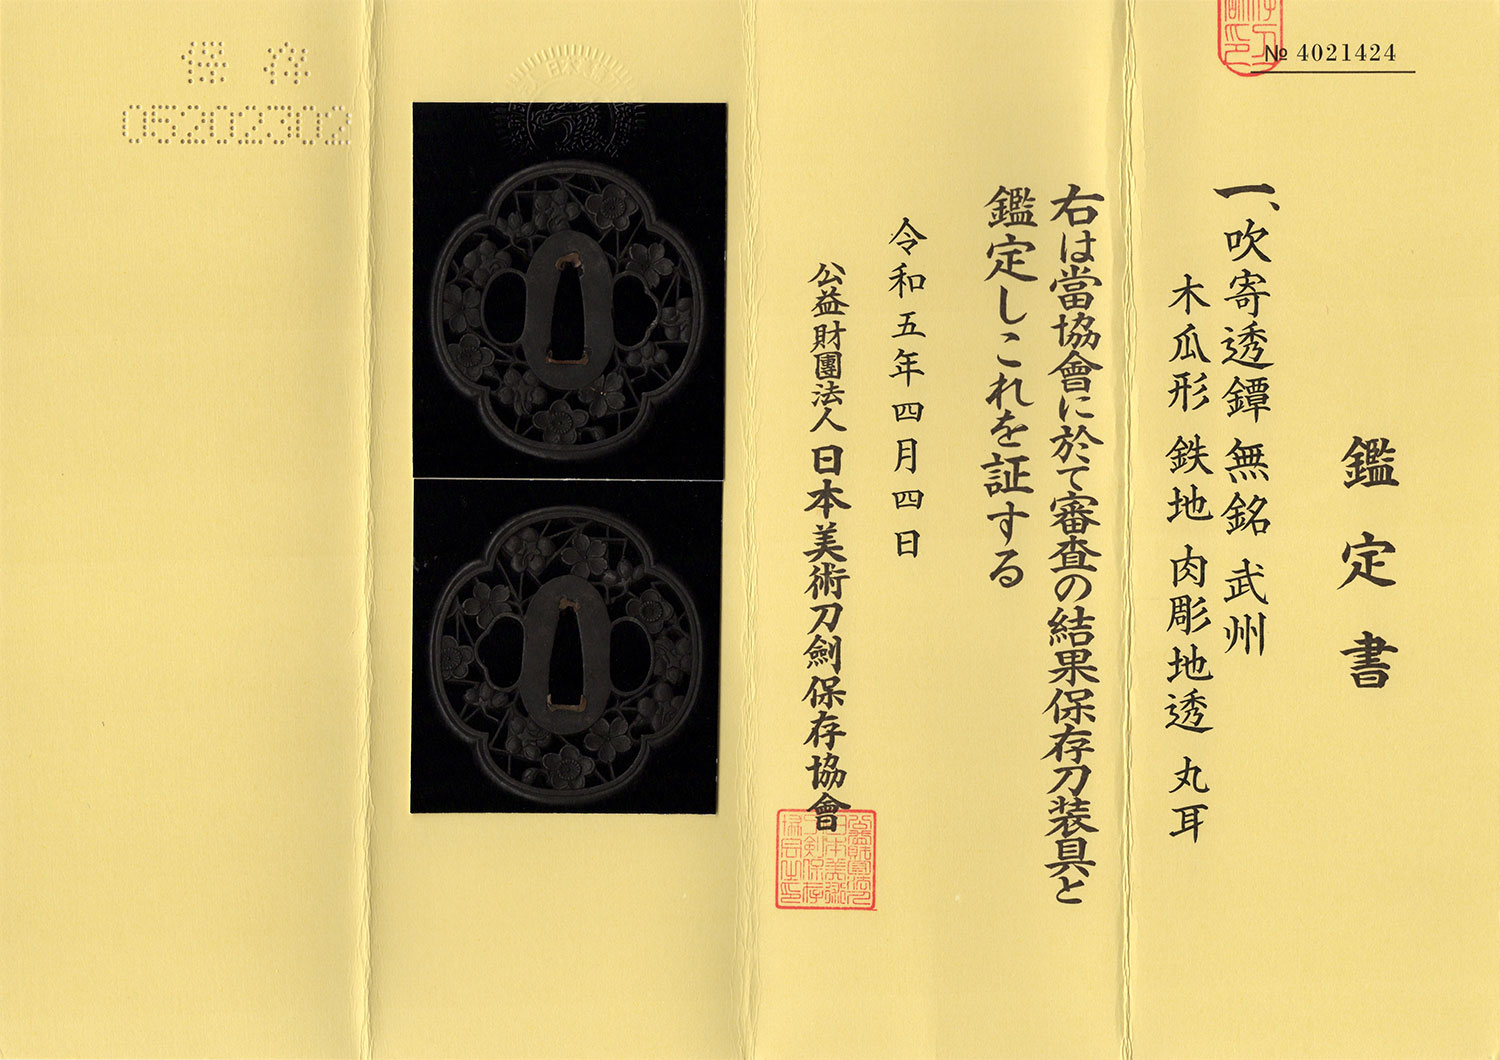 № 4021424
鑑定書
一、吹寄透鐔 無銘 武州
木瓜形 鉄地 肉彫地透 丸耳
右は當協會に於て審査の結果保存刀装具と
鑑定しこれを証する
令和五年四月四日
公益財團法人 日本美術刀劍保存協會
保存
05202302